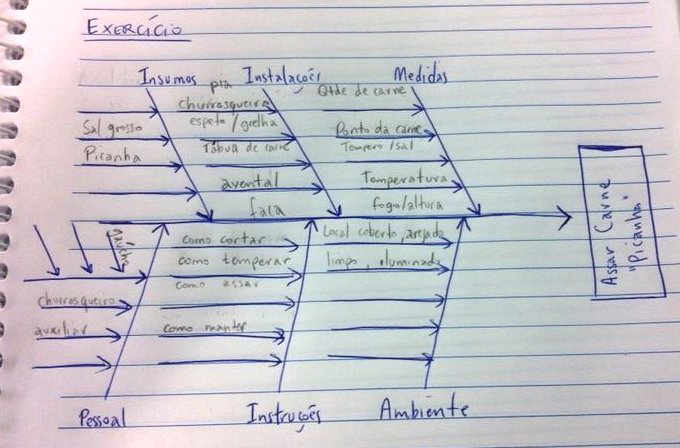 EXERCÍCIO
Insumos
Sal grosso
Picanha
Instalações
pia
churrasqueira
espeto/grelha
Tábua de carne
avental
faca
Medidas
Qtde de carne
Ponto da carne
Tempero/sal
Temperatura
fogo/altura
Assar Carne
"Picanha"
churrasqueiro
auxiliar
Pessoal
como cortar
como temperar
como assar
como manter
Instruções
Local coberto, arejado
limpo, iluminado
Ambiente